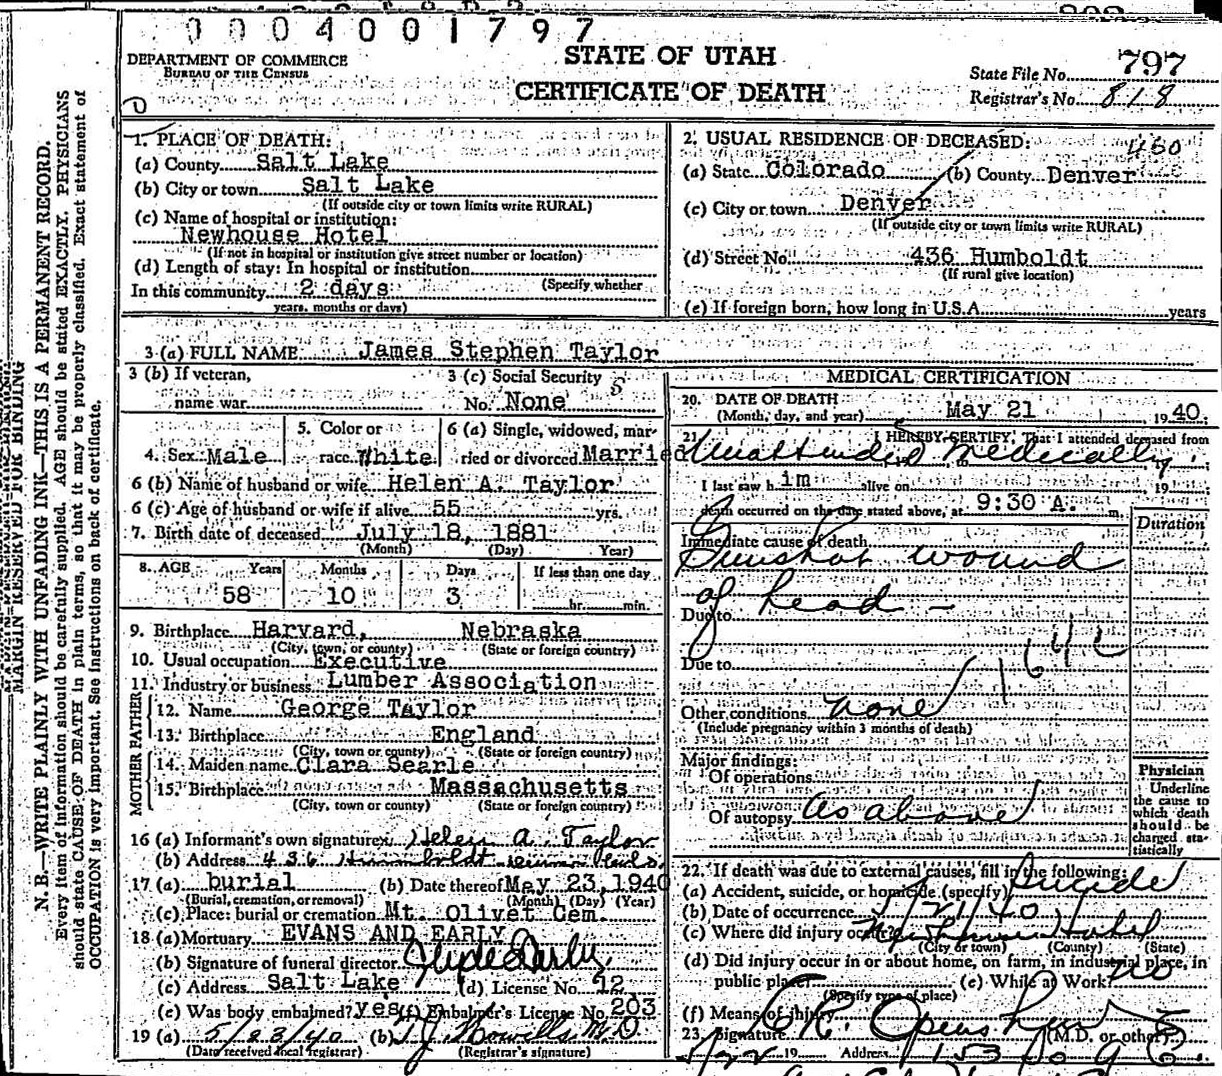 0004001797
DEPARTMENT OF COMMERCE
BUREAU OF THE CENSUS
STATE OF UTAH
CERTIFICATE OF DEATH
State File No. 797
Registrar's No. 818
1. PLACE OF DEATH:
(a) County Salt Lake
(b) City or town Salt Lake
(If outside city or town limits write RURAL)
(c) Name of hospital or institution:
Newhouse Hotel
(If not in hospital or institution give street number or location)
(d) Length of stay: In hospital or institution
(Specify whether
In this community 2 days
years, months or days)
2. USUAL RESIDENCE OF DECEASED:
(a) State Colorado (b) County Denver
(c) City or town Denver
(If outside city or town limits write RURAL)
(d) Street No. 436 Humboldt
(If rural give location)
(e) If foreign born, how long in U.S.A. years
3 (a) FULL NAME James Stephen Taylor
3 (b) If veteran,
name war
3 (c) Social Security
No. None
4. Sex Male
5. Color or
race White
6 (a) Single, widowed, mar-
ried or divorced Married
6 (b) Name of husband or wife Helen A. Taylor
6 (c) Age of husband or wife if alive 55 yrs.
7. Birth date of deceased July 18, 1881
(Month) (Day) Year)
8. AGE Years Months Days If less than one day
58 10 3 hr. min.
9. Birthplace Harvard, Nebraska
(City, town, or county) (State or foreign country)
10. Usual occupation Executive
11. Industry or business Lumber Association
FATHER
12. Name George Taylor
13. Birthplace England
(City, town or county) (State or foreign country)
MOTHER
14. Maiden name Clara Searle
15. Birthplace Massachusetts
(City, town or county) (State or foreign country)
16 (a) Informant's own signature Helen A. Taylor
(b) Address 436 Humboldt
17 (a) burial (b) Date thereof May 23, 1940
(Burial, cremation, or removal) (Month) (Day) (Year)
(c) Place: burial or cremation Mt. Olivet Cem.
18 (a) Mortuary EVANS AND EARLY
(b) Signature of funeral director
(c) Address Salt Lake (d) License No. 12
(e) Was body embalmed? yes (f) Embalmer's License No. 203
19 (a) 5/23/40 (b)
(Date received local registrar) (Registrar's signature)
MEDICAL CERTIFICATION
20. DATE OF DEATH
(Month, day, and year) May 21 1940.
21. I HEREBY CERTIFY, That I attended deceased from
Unattended Medically
I last saw him alive on 19
death occurred on the date stated above, at 9:30 A. m.
Duration
Immediate cause of death
Gunshot wound
of head -
Due to
Due to
Other conditions none
(Include pregnancy within 3 months of death)
Major findings:
Of operations
Of autopsy As above
Physician
Underline
the cause to
which death
should be
charged sta-
tistically
22. If death was due to external causes, fill in the following:
(a) Accident, suicide, or homicide (specify) Suicide
(b) Date of occurrence 5/21/40
(c) Where did injury occur? Newhouse Hotel
(City or town) (County) (State)
(d) Did injury occur in or about home, on farm, in industrial place, in
public place? (e) While at Work? no
(Specify type of place)
(f) Means of injury
23. Signature (M.D. or other)
19 Address
MARGIN RESERVED FOR BINDING
N. B.—WRITE PLAINLY WITH UNFADING INK—THIS IS A PERMANENT RECORD.
Every item of information should be carefully supplied. AGE should be stated EXACTLY. PHYSICIANS
should state CAUSE OF DEATH in plain terms, so that it may be properly classified. Exact statement of
OCCUPATION is very important. See instructions on back of certificate.